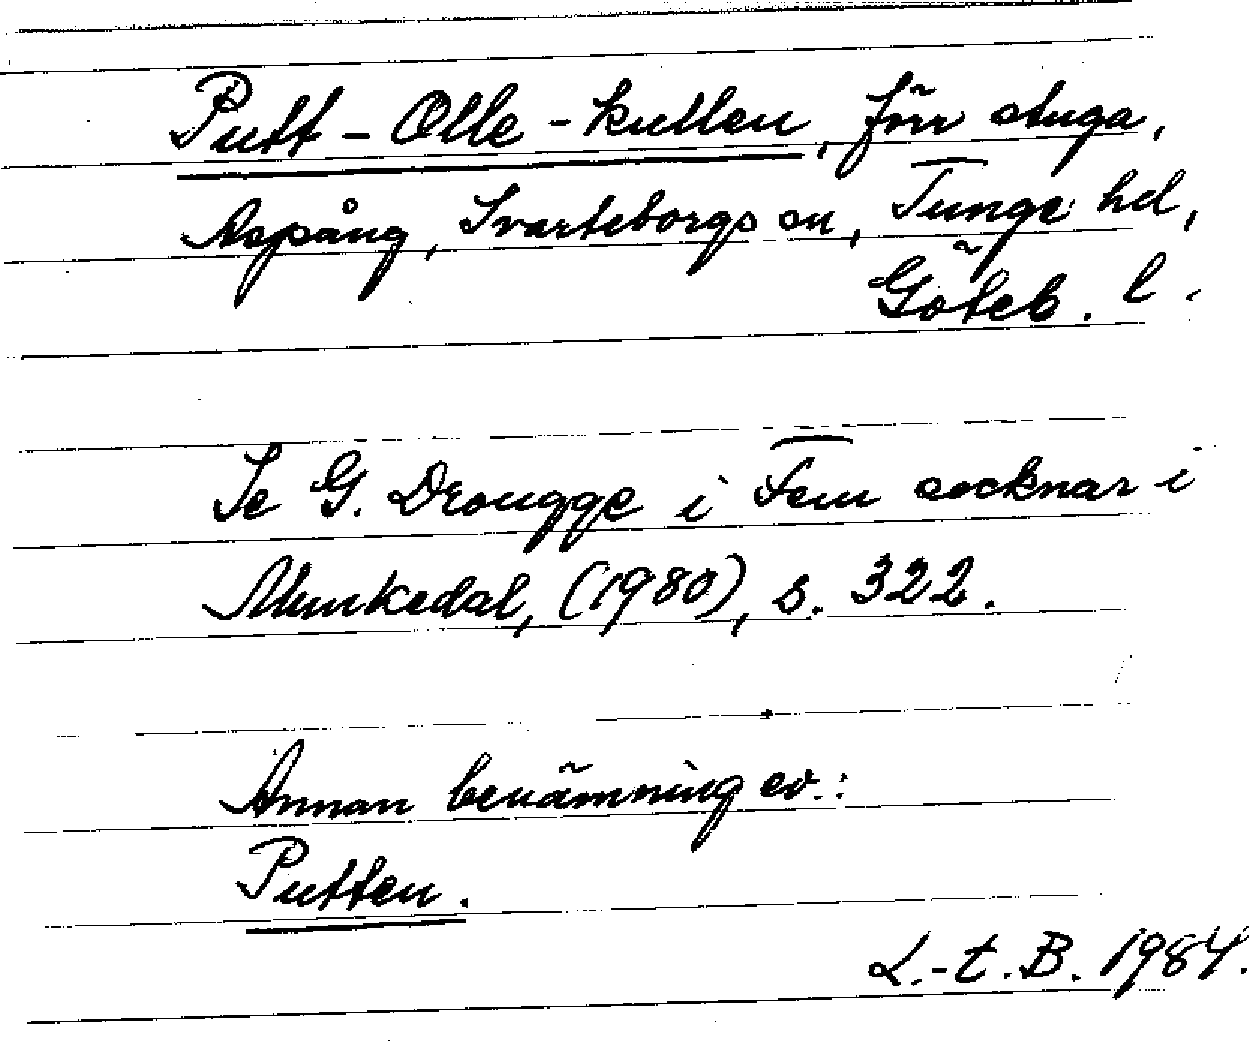 Putt-Olle-kullen, förr stuga,
Aspång, Svarteborgs sn, Tunge hd,
Göteb. l.
Se G. Drougge i Fem socknar i
Munkedal, (1980), s. 322.
Annan benämning ev.:
Putten.
L.-t. B. 1984.